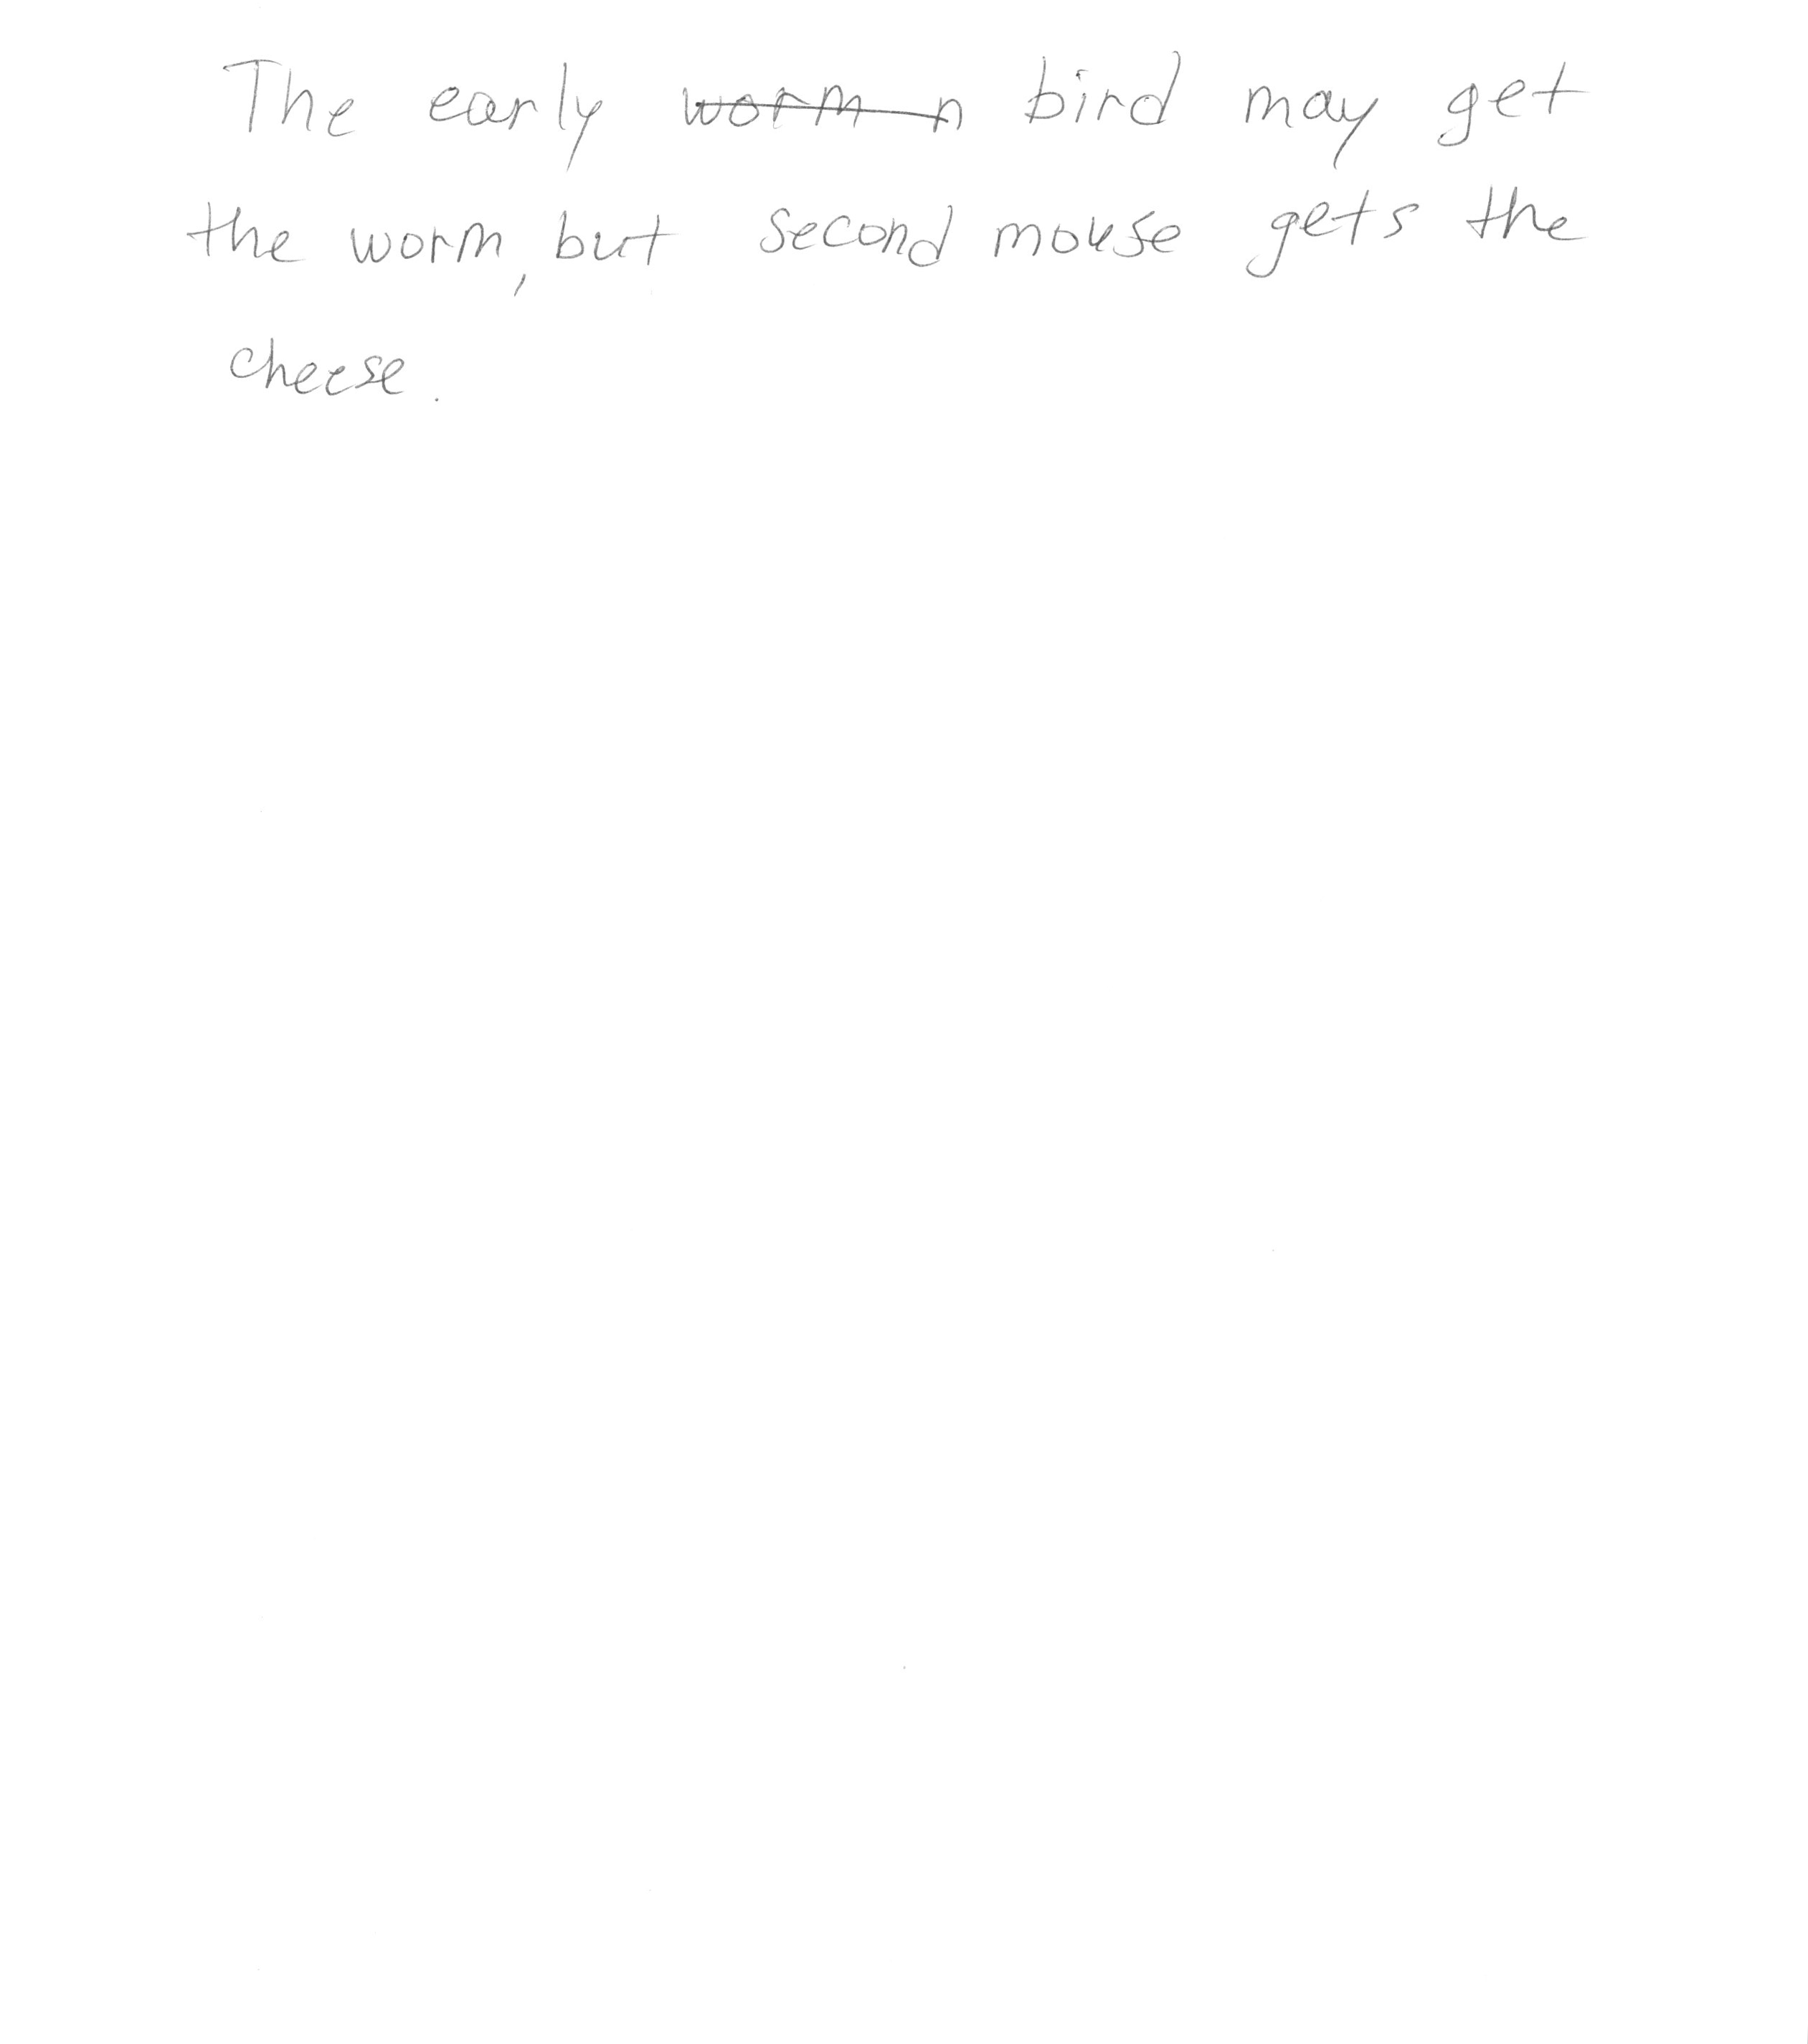 The early worm n bird may get
the worm, but second mouse gets the
cheese.